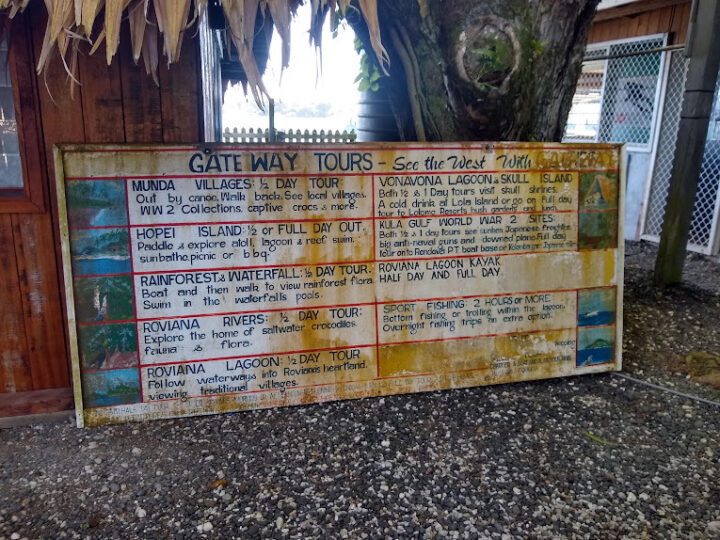 GATEWAY TOURS - See the West With
MUNDA VILLAGES: ½ DAY TOUR:
Out by canoe. Walk back. See local villages.
WW2 Collections, captive crocs & more.
HOPEI ISLAND: ½ OR FULL DAY OUT.
Paddle & explore atoll, lagoon & reef swim.
sunbathe, picnic or b'bq.
RAINFOREST & WATERFALL: ½ DAY TOUR.
Boat and then walk to view rainforest flora.
Swim in the waterfalls pools.
ROVIANA RIVERS: ½ DAY TOUR:
Explore the home of saltwater crocodiles.
fauna & flora.
ROVIANA LAGOON: ½ DAY TOUR
Follow waterways into Roviana's heartland.
viewing traditional villages.
VONAVONA LAGOON & SKULL ISLAND
Both ½ & 1 Day tours visit skull shrines.
A cold drink at Lola Island or go on Full day
tour to Lolomo Resorts bush gardens and lunch.
KULA GULF WORLD WAR 2 SITES:
Both ½ & 1 day tours see sunken Japanese freighter
big anti-naval guns and downed plane. Full day
tour on to Rendova's P.T boat base or
ROVIANA LAGOON KAYAK
HALF DAY AND FULL DAY.
SPORT FISHING: 2 HOURS OR MORE.
Bottom fishing or trolling within the lagoon.
Overnight fishing trips an extra option.